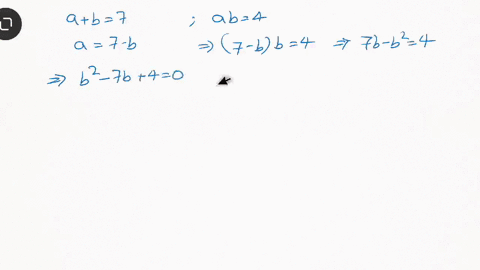 a+b=7 ; ab=4
a=7-b ⇒ (7-b)b=4 ⇒ 7b-b²=4
⇒ b²-7b+4=0